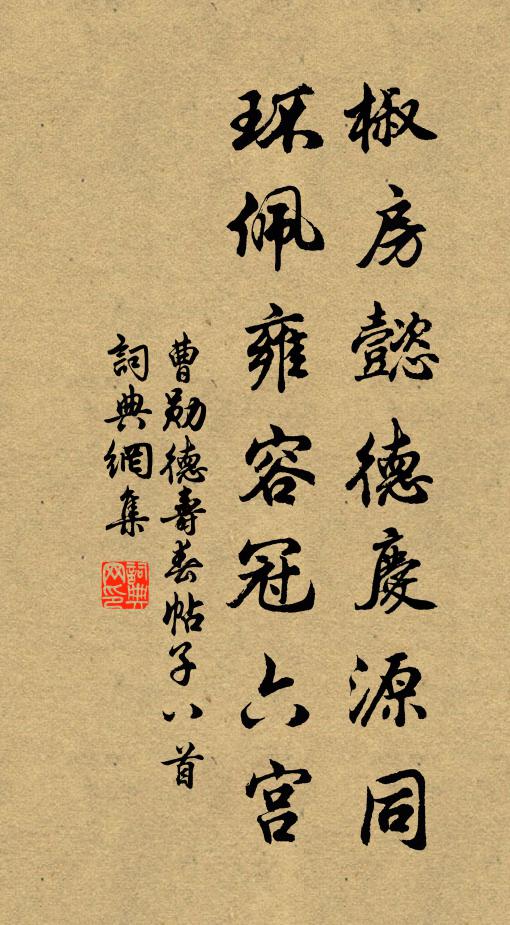 椒房懿德慶源同
环佩雍容冠六宫
曹勋德壽春帖子八首
詞典網集
詞典网印